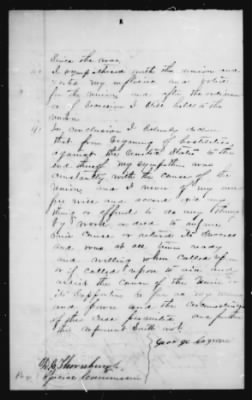 Since the war.
40 I sympathised with the union and
voted my influence and votes
for the union and after the ordinance
of Secession I still held to the
union
41 In conclusion I solemnly declare
that from beginning of hostilities
against the United States to the
end thereof my sympathies was
constantly with the cause of the
Union and I never of my own
free will and accord did any
thing or offered to do any thing
by word or deed to injure
said cause or retard its success
and was at all times ready
and willing when called upon
or if called upon to aid and
assist the cause of the Union or
its supporters so far as my means
and power and the circumstances
of the case permitted and further
this deponent saith not.
George
Special Commissioner